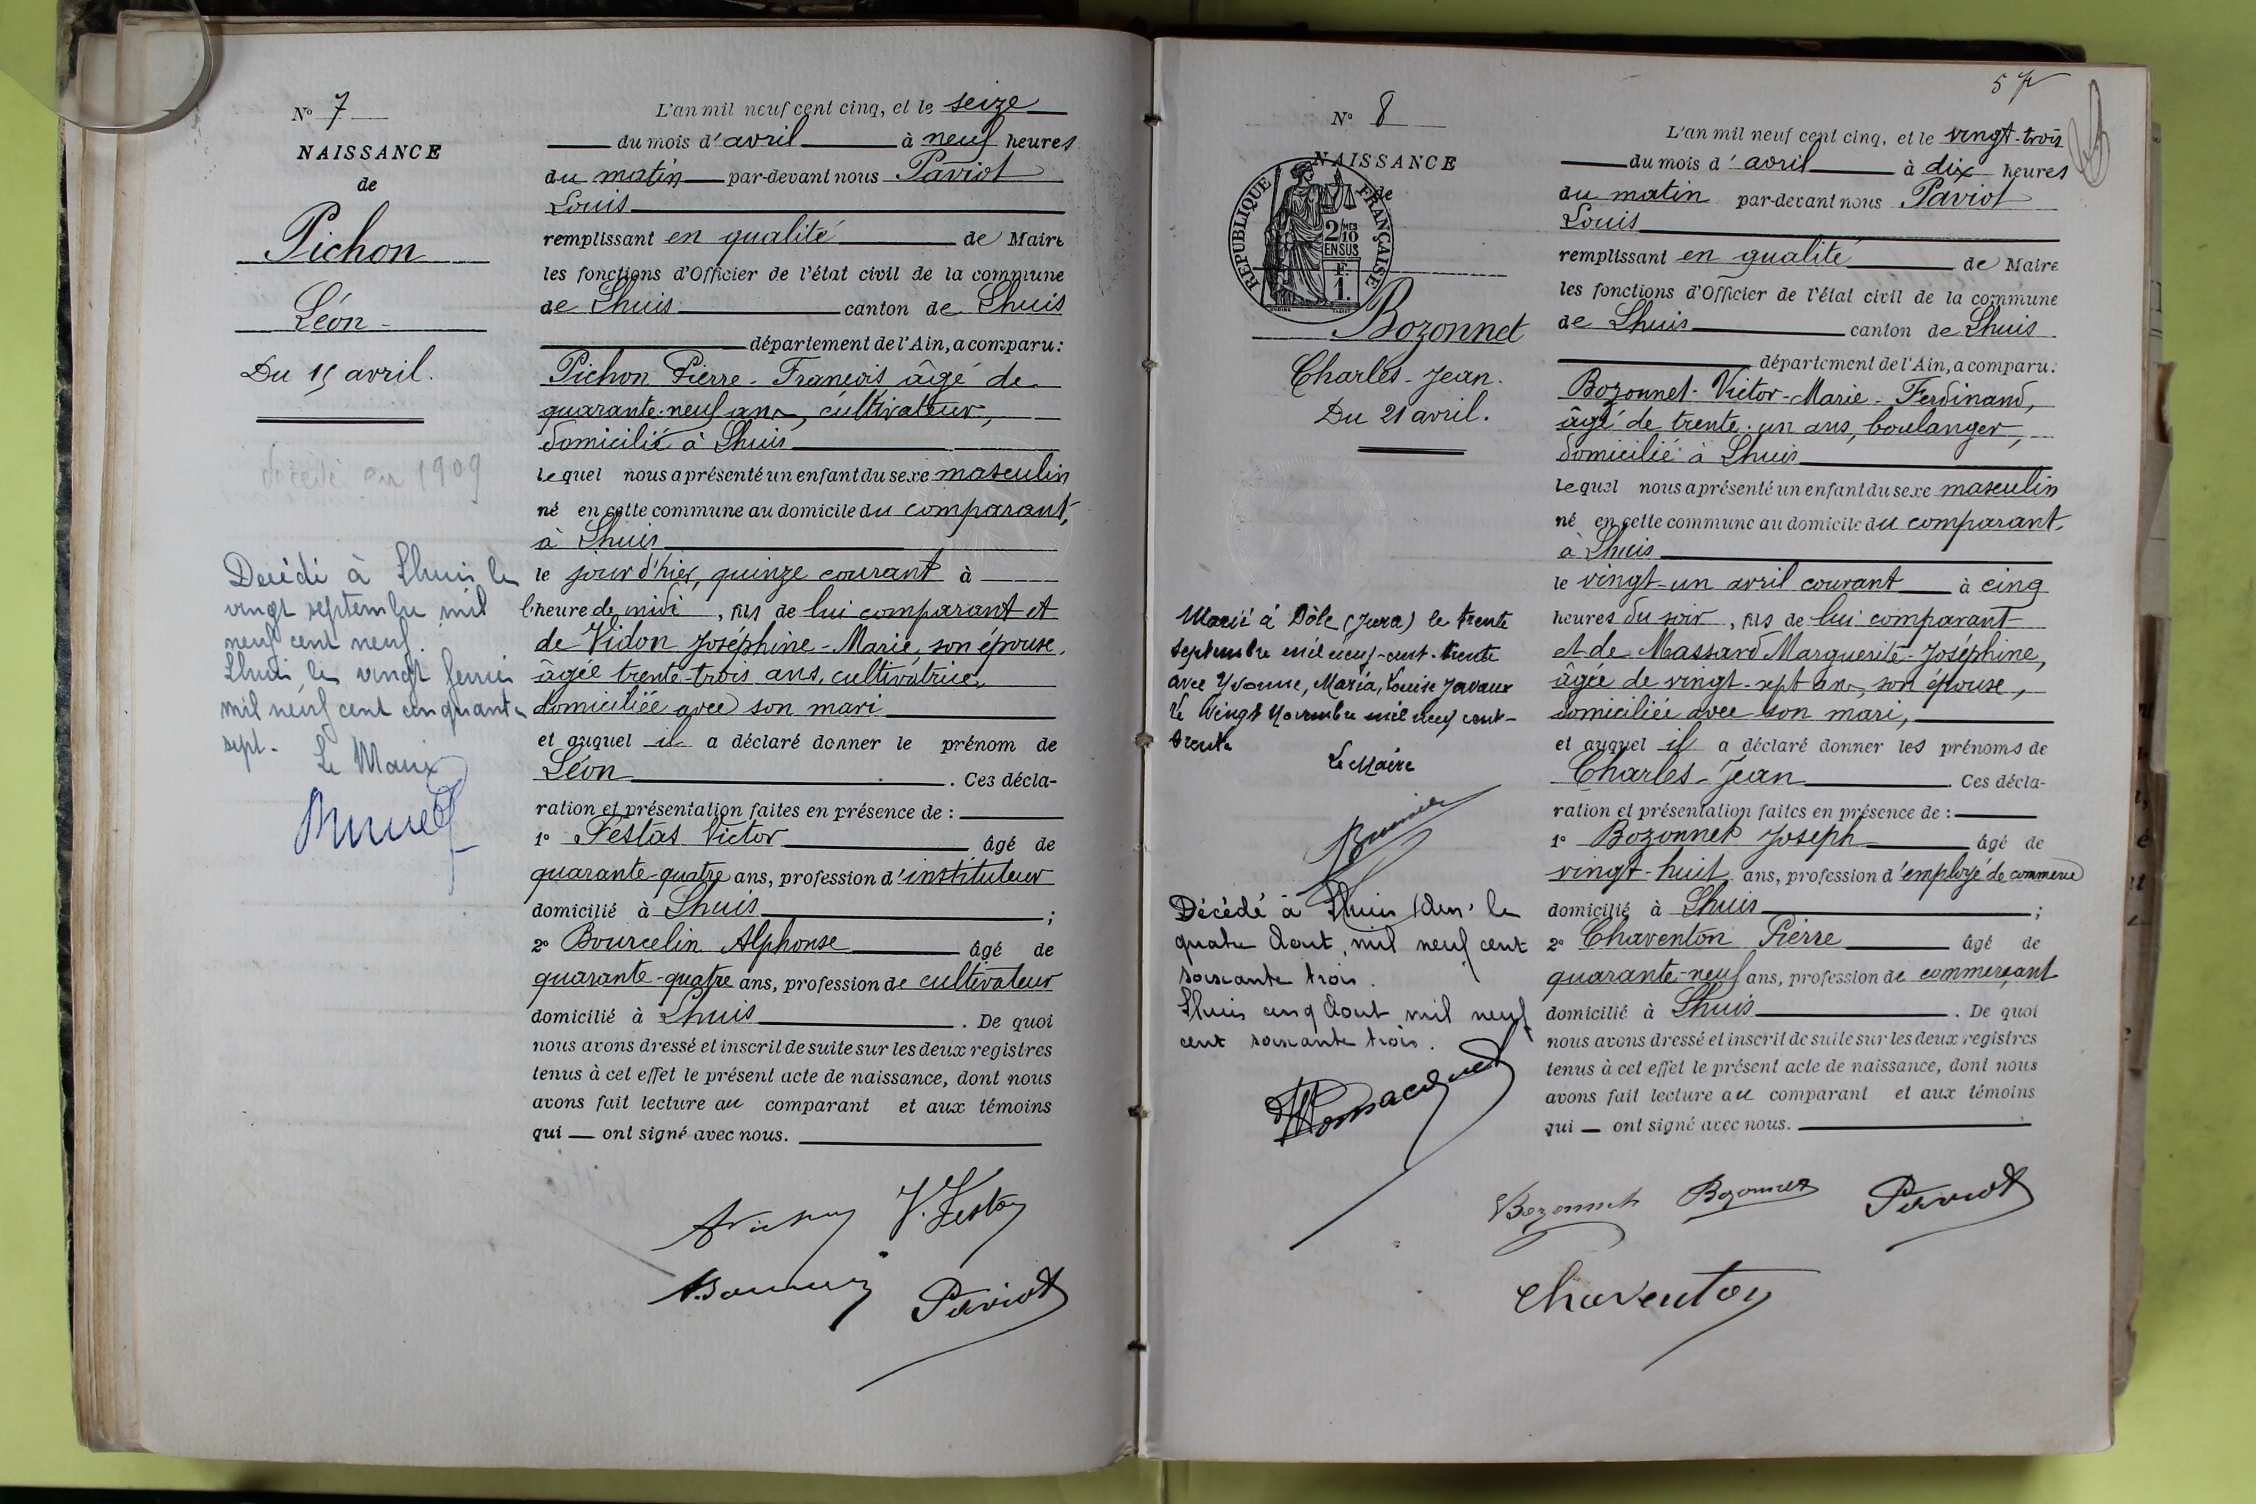 N° 7
NAISSANCE
de
Pichon
Léon
Du 15 avril.
décédé en 1909
Décédé à Lhuis le
vingt septembre mil
neuf cent neuf.
Lhuis le vingt
mil neuf cent cinquante
sept.
Le Maire
L'an mil neuf cent cinq, et le seize
du mois d'avril à neuf heures
du matin par-devant nous Paviot
Louis
remplissant en qualité de Maire
les fonctions d'Officier de l'état civil de la commune
de Lhuis canton de Lhuis
département de l'Ain, a comparu:
Pichon Pierre-François âgé de
quarante-neuf ans, cultivateur,
domicilié à Lhuis
lequel nous a présenté un enfant du sexe masculin
né en cette commune au domicile du comparant,
à Lhuis
le jour d'hier, quinze courant à
l'heure de midi, fils de lui comparant et
de Vidon Joséphine-Marie, son épouse,
âgée trente-trois ans, cultivatrice,
domiciliée avec son mari
et auquel il a déclaré donner le prénom de
Léon. Ces décla-
ration et présentation faites en présence de:
1° Festas Victor âgé de
quarante-quatre ans, profession d'instituteur
domicilié à Lhuis;
2° Bourcelin Alphonse âgé de
quarante-quatre ans, profession de cultivateur
domicilié à Lhuis. De quoi
nous avons dressé et inscrit de suite sur les deux registres
tenus à cet effet le présent acte de naissance, dont nous
avons fait lecture au comparant et aux témoins
qui — ont signé avec nous.
V. Festas
Paviot
57
N° 8
NAISSANCE
de
REPUBLIQUE FRANÇAISE
2/10 MES
EN SUS
F.
1.
Bozonnet
Charles-Jean.
Du 21 avril.
Marié à Dôle (Jura) le trente
septembre mil neuf-cent-trente
avec Yvonne, Maria, Louise Javaux
le Vingt Novembre mil neuf cent-
trente
Le Maire
Décédé à Lhuis (Ain) le
quatre Aout mil neuf cent
soixante trois.
Lhuis cinq Aout mil neuf
cent soixante trois.
L'an mil neuf cent cinq, et le vingt-trois
du mois d'avril à dix heures
du matin par-devant nous Paviot
Louis
remplissant en qualité de Maire
les fonctions d'Officier de l'état civil de la commune
de Lhuis canton de Lhuis
département de l'Ain, a comparu:
Bozonnet-Victor-Marie-Ferdinand,
âgé de trente-un ans, boulanger,
domicilié à Lhuis
lequel nous a présenté un enfant du sexe masculin
né en cette commune au domicile du comparant,
à Lhuis
le vingt-un avril courant à cinq
heures du soir, fils de lui comparant
et de Massard Marguerite-Joséphine,
âgée de vingt-sept ans, son épouse,
domiciliée avec son mari,
et auquel il a déclaré donner les prénoms de
Charles-Jean. Ces décla-
ration et présentation faites en présence de:
1° Bozonnet Joseph âgé de
vingt-huit ans, profession d'employé de commerce
domicilié à Lhuis;
2° Chaventon Pierre âgé de
quarante-neuf ans, profession de commerçant
domicilié à Lhuis. De quoi
nous avons dressé et inscrit de suite sur les deux registres
tenus à cet effet le présent acte de naissance, dont nous
avons fait lecture au comparant et aux témoins
qui — ont signé avec nous.
Bozonnet Bozonnet Paviot
Chaventon